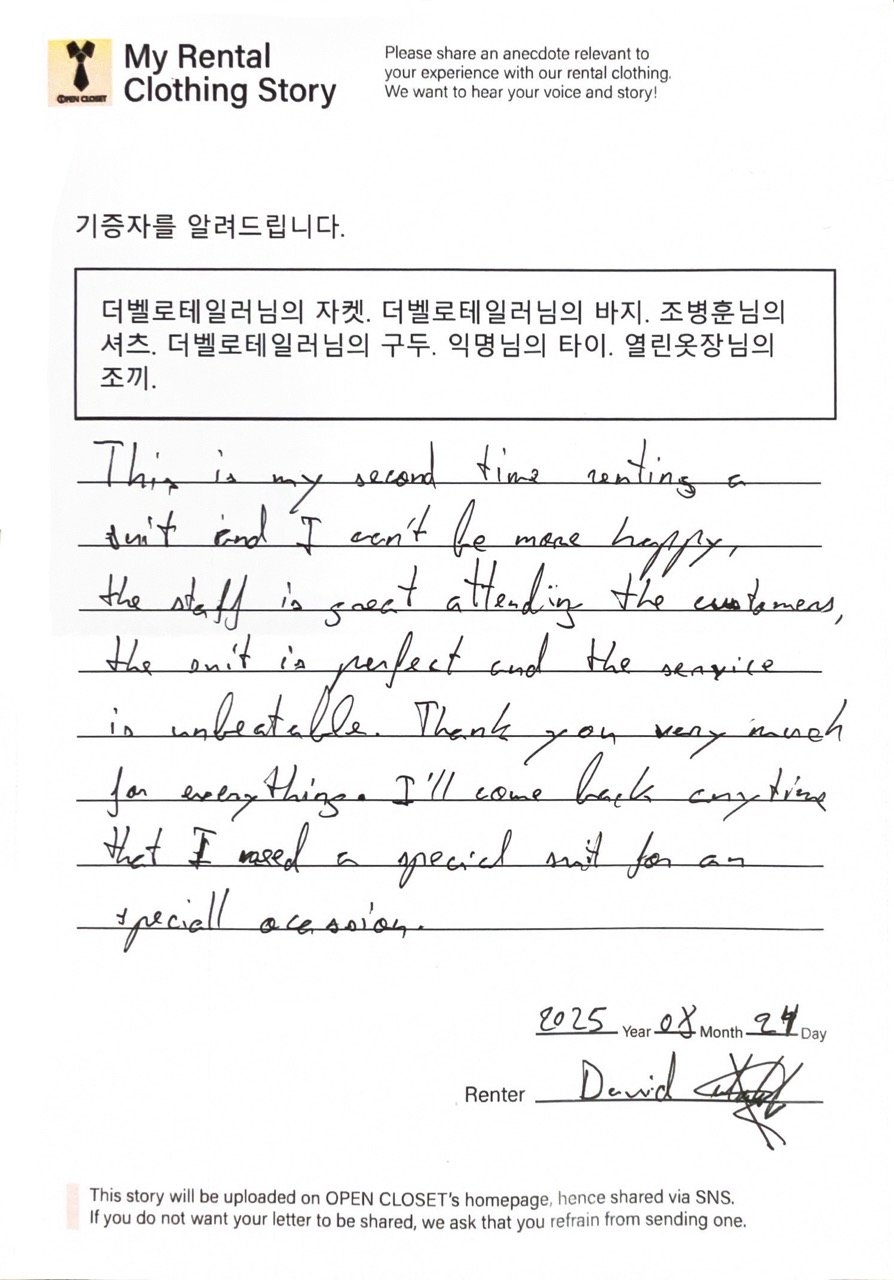 OPEN CLOSET
My Rental
Clothing Story
Please share an anecdote relevant to
your experience with our rental clothing.
We want to hear your voice and story!
기증자를 알려드립니다.
더벨로테일러님의 자켓. 더벨로테일러님의 바지. 조병훈님의
셔츠. 더벨로테일러님의 구두. 익명님의 타이. 열린옷장님의
조끼.
This is my second time renting a
suit and I can't be more happy,
the staff is great attending the customers,
the suit is perfect and the service
is unbeatable. Thank you very much
for everything. I'll come back anytime
that I need a special suit for an
speciall ocassion.
2025 Year 08 Month 24 Day
Renter David
This story will be uploaded on OPEN CLOSET's homepage, hence shared via SNS.
If you do not want your letter to be shared, we ask that you refrain from sending one.